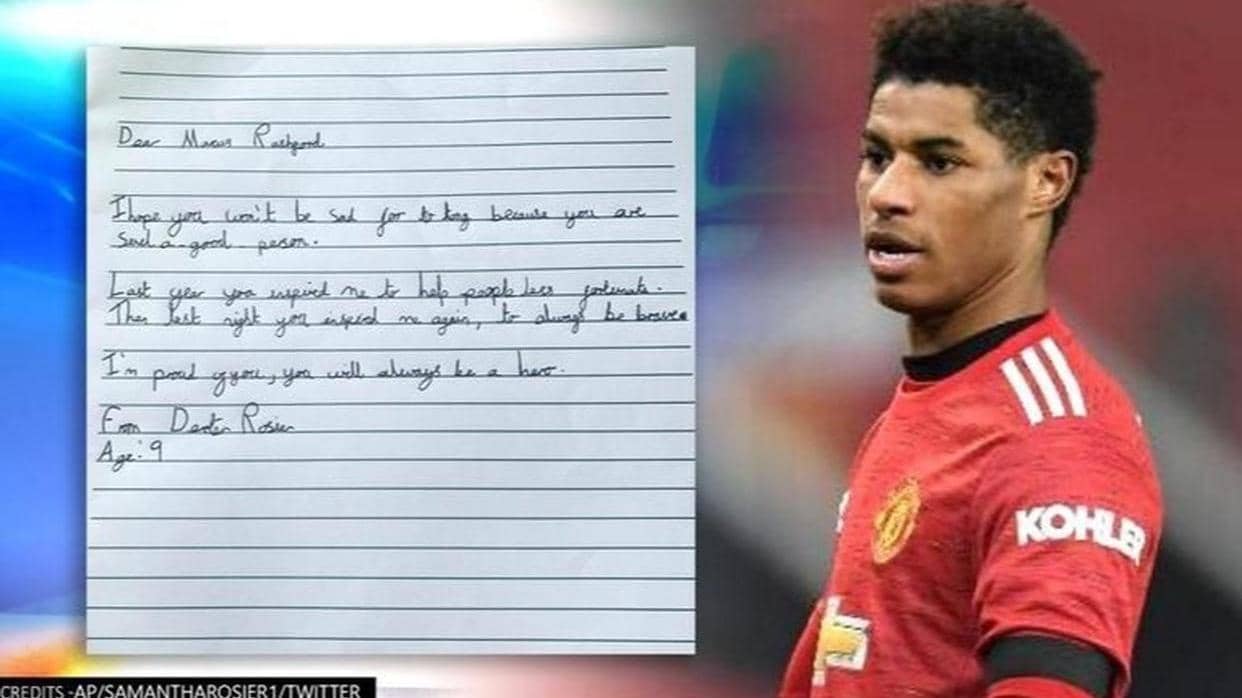 Dear Marcus Rashford
I hope you won't be sad for to long because you are
such a good person.
Last year you inspired me to help people less fortunate.
Then last night you inspired me again, to always be brave.
I'm proud of you, you will always be a hero.
From Dexter Rosier
Age: 9
KOHLER
CREDITS -AP/SAMANTHAROSIER1/TWITTER